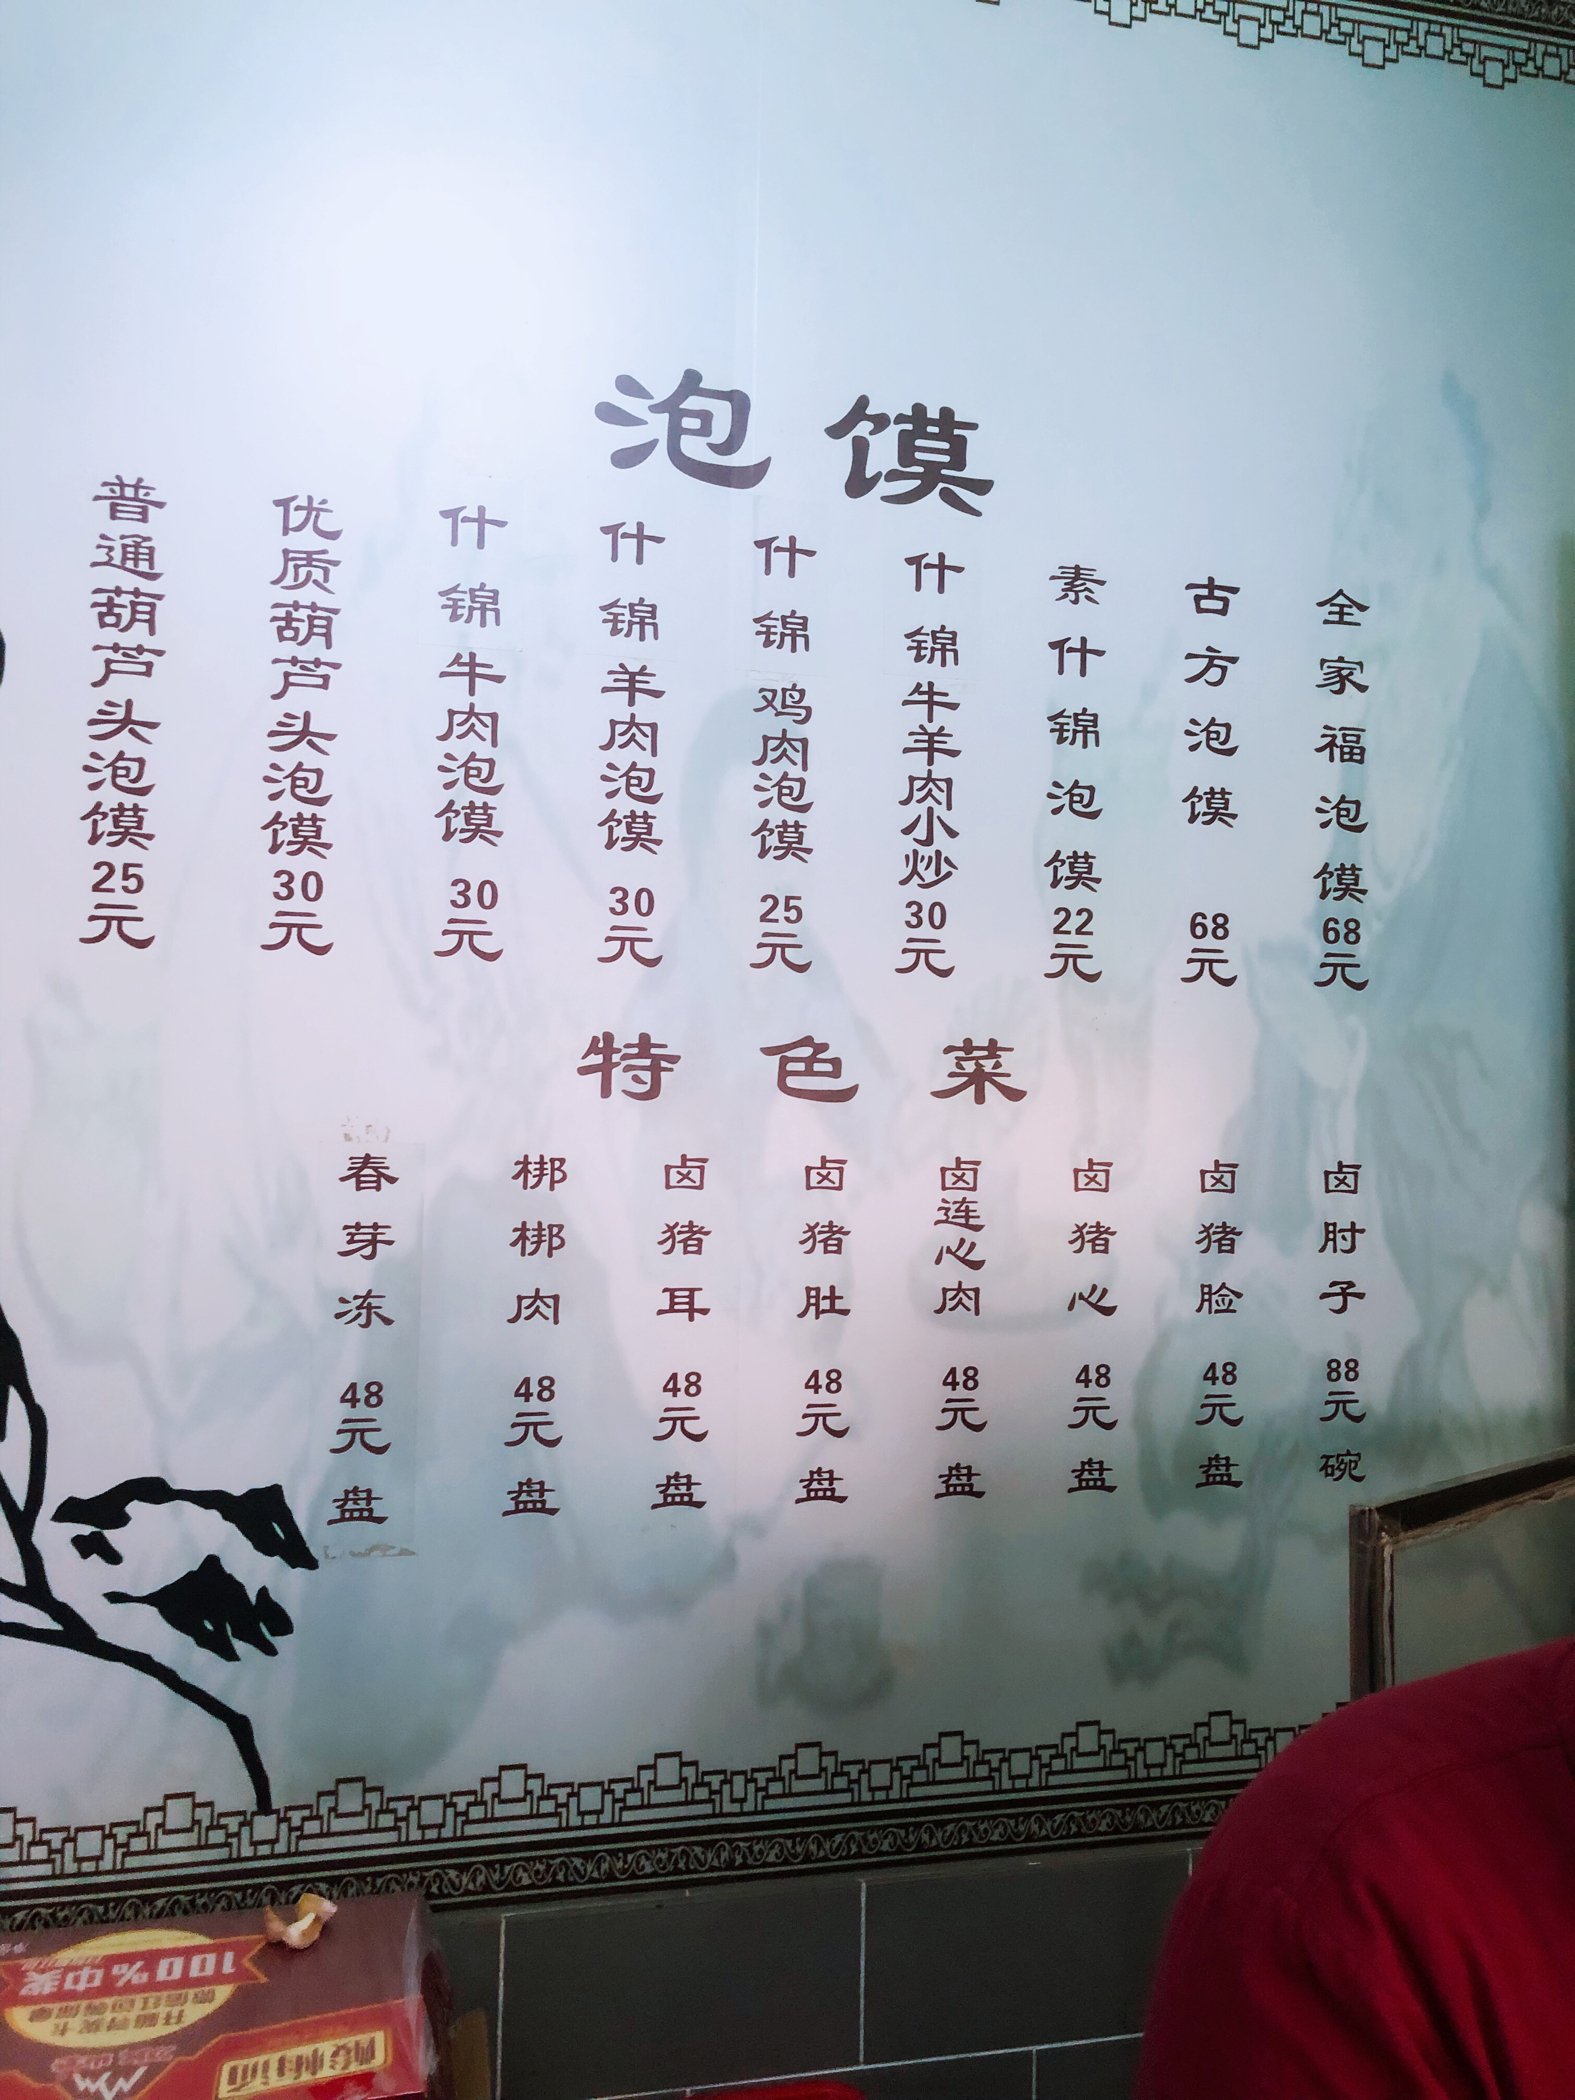 泡馍
普通葫芦头泡馍25元
优质葫芦头泡馍30元
什锦牛肉泡馍30元
什锦羊肉泡馍30元
什锦鸡肉泡馍25元
什锦牛羊肉小炒30元
素什锦泡馍22元
古方泡馍68元
全家福泡馍68元
特色菜
春芽冻48元盘
梆梆肉48元盘
卤猪耳48元盘
卤猪肚48元盘
卤连心肉48元盘
卤猪心48元盘
卤猪脸48元盘
卤肘子88元碗
100%中奖